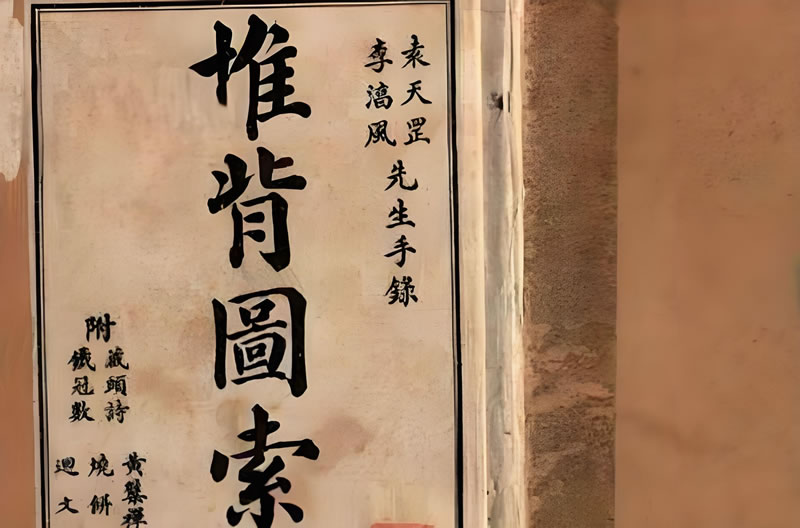 袁天罡
李淳風
先生手錄
推背圖索
附
藏頭詩
鐵冠數
黃蘗禪
燒餅
迴文